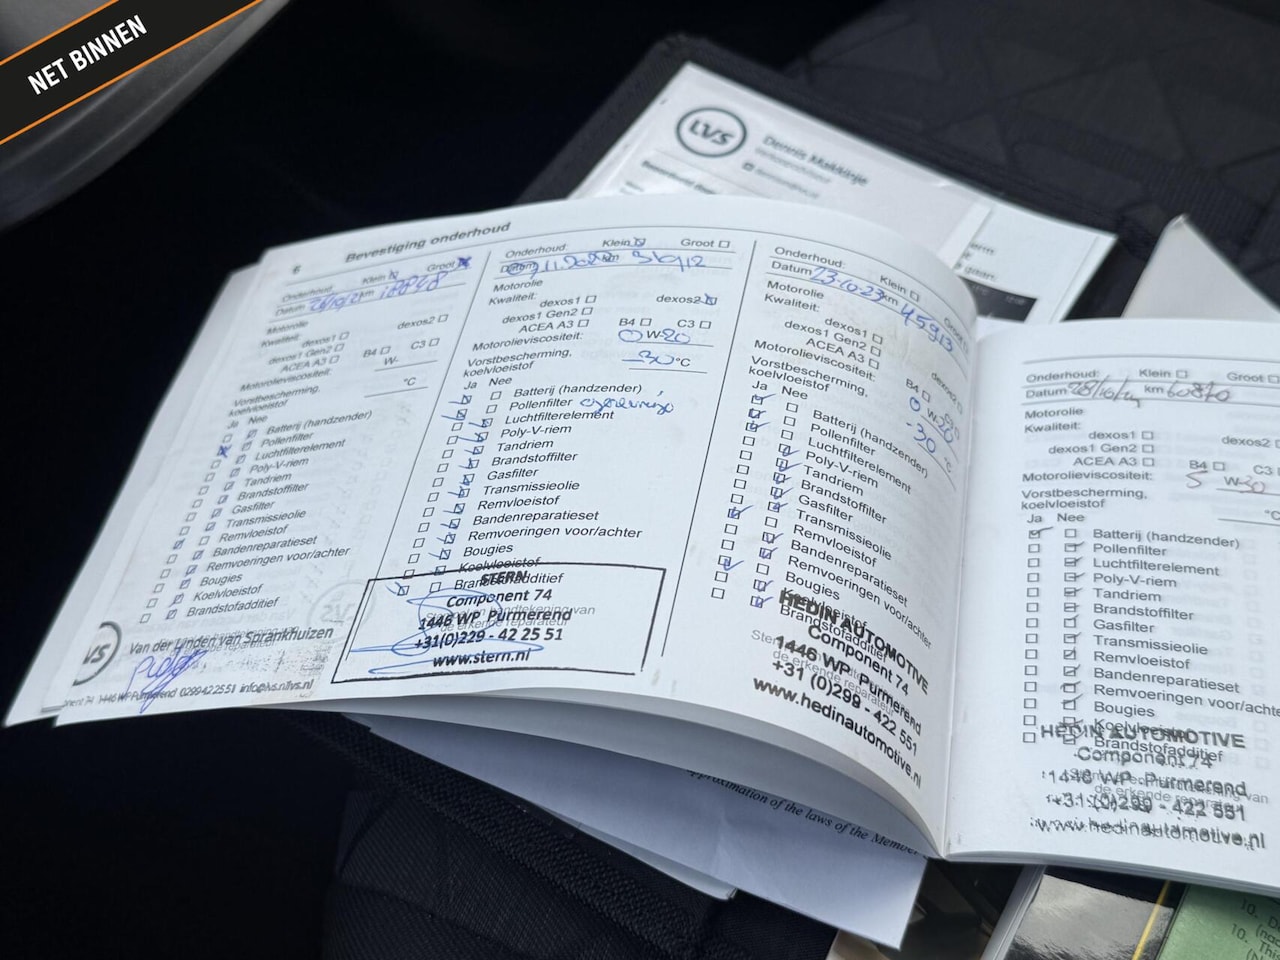 NET BINNEN
LVS
Dennis Makkinje
6
Bevestiging onderhoud
Onderhoud: Klein Groot
Datum km 18848
Motorolie
Kwaliteit: dexos1 dexos2
dexos1 Gen2
ACEA A3 B4 C3
Motorolieviscositeit: W-
Vorstbescherming,
koelvloeistof °C
Ja Nee
Batterij (handzender)
Pollenfilter
Luchtfilterelement
Poly-V-riem
Tandriem
Brandstoffilter
Gasfilter
Transmissieolie
Remvloeistof
Bandenreparatieset
Remvoeringen voor/achter
Bougies
Koelvloeistof
Brandstofadditief
Van der Linden van Sprankhuizen
74 1446 WP Purmerend 0299 42 25 51 info@lvs.nl lvs.nl
Onderhoud: Klein Groot
Datum km 31012
Motorolie
Kwaliteit: dexos1 dexos2
dexos1 Gen2
ACEA A3 B4 C3
Motorolieviscositeit: 0 W-20
Vorstbescherming,
koelvloeistof -30 °C
Ja Nee
Batterij (handzender)
Pollenfilter
Luchtfilterelement
Poly-V-riem
Tandriem
Brandstoffilter
Gasfilter
Transmissieolie
Remvloeistof
Bandenreparatieset
Remvoeringen voor/achter
Bougies
Koelvloeistof
Brandstofadditief
STERN
Component 74
1446 WP Purmerend
+31(0)229 - 42 25 51
www.stern.nl
Onderhoud: Klein Groot
Datum 23-10-23 km 45913
Motorolie
Kwaliteit: dexos1 dexos2
dexos1 Gen2
ACEA A3 B4
Motorolieviscositeit: 0 W-20
Vorstbescherming,
koelvloeistof -30 °C
Ja Nee
Batterij (handzender)
Pollenfilter
Luchtfilterelement
Poly-V-riem
Tandriem
Brandstoffilter
Gasfilter
Transmissieolie
Remvloeistof
Bandenreparatieset
Remvoeringen voor/achter
Bougies
Koelvloeistof
Brandstofadditief
HEDIN AUTOMOTIVE
Component 74
1446 WP Purmerend
+31 (0)299 - 422 551
www.hedinautomotive.nl
Onderhoud: Klein Groot
Datum km 60870
Motorolie
Kwaliteit: dexos1 dexos2
dexos1 Gen2
ACEA A3 B4 C3
Motorolieviscositeit: 5 W-30
Vorstbescherming,
koelvloeistof
Ja Nee
Batterij (handzender)
Pollenfilter
Luchtfilterelement
Poly-V-riem
Tandriem
Brandstoffilter
Gasfilter
Transmissieolie
Remvloeistof
Bandenreparatieset
Remvoeringen voor/achter
Bougies
Koelvloeistof
Brandstofadditief
HEDIN AUTOMOTIVE
Component 74
1446 WP Purmerend
+31 (0)299 - 422 551
www.hedinautomotive.nl
approximation of the laws of the Member